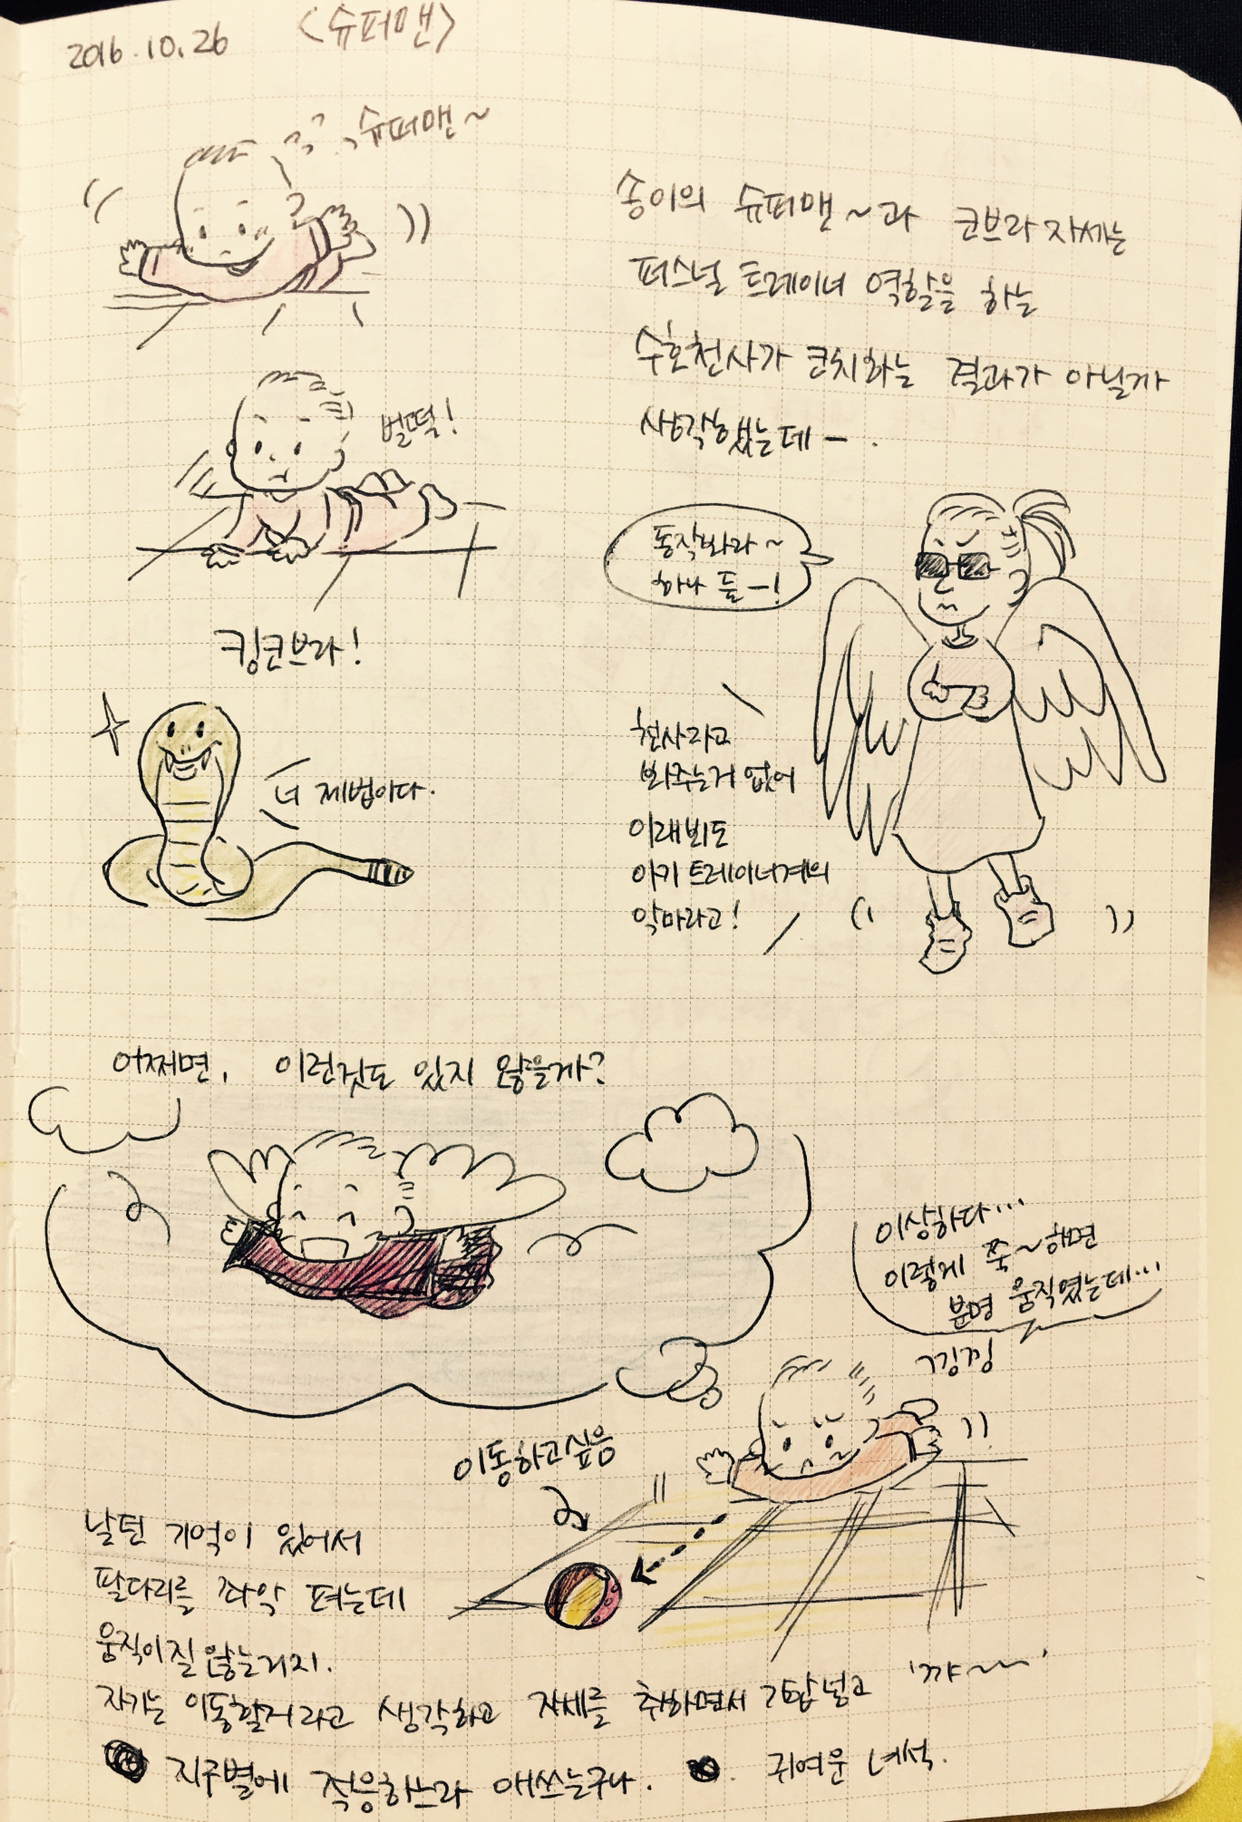 2016.10.26 <슈퍼맨>
슈퍼맨~
벌떡!
킹코브라!
너 제법이다.
송이의 슈퍼맨~과 코브라 자세는
퍼스널 트레이너 역할을 하는
수호천사가 코치하는 결과가 아닐까
생각했는데-.
동작봐라~
하나 둘-!
천사라고
봐주는거 없어
이래뵈도
아기 트레이너계의
악마라고!
어쩌면, 이런것도 있지 않을까?
이상하다...
이렇게 쭉~하면
분명 움직였는데...
낑낑
이동하고싶음
날던 기억이 있어서
팔다리를 좌악 펴는데
움직이질 않는거지.
자기는 이동할거라고 생각하고 자세를 취하면서 기합넣고 '꺄~~'
지구별에 적응하느라 애쓰는구나. 귀여운 녀석.